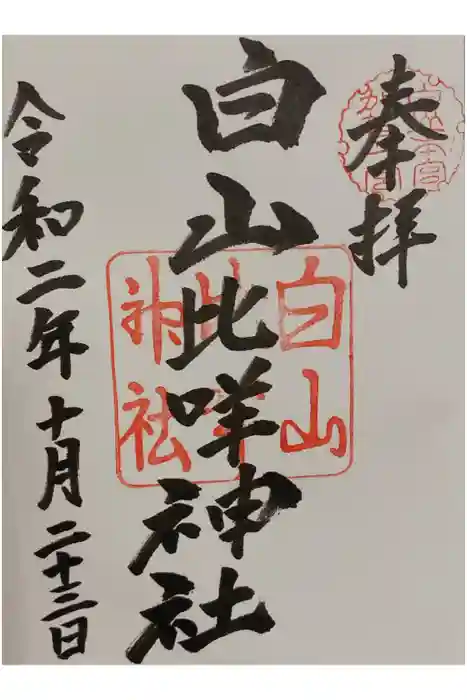 奉拝
白山比咩神社
令和二年十月二十三日
白山
比咩
神社